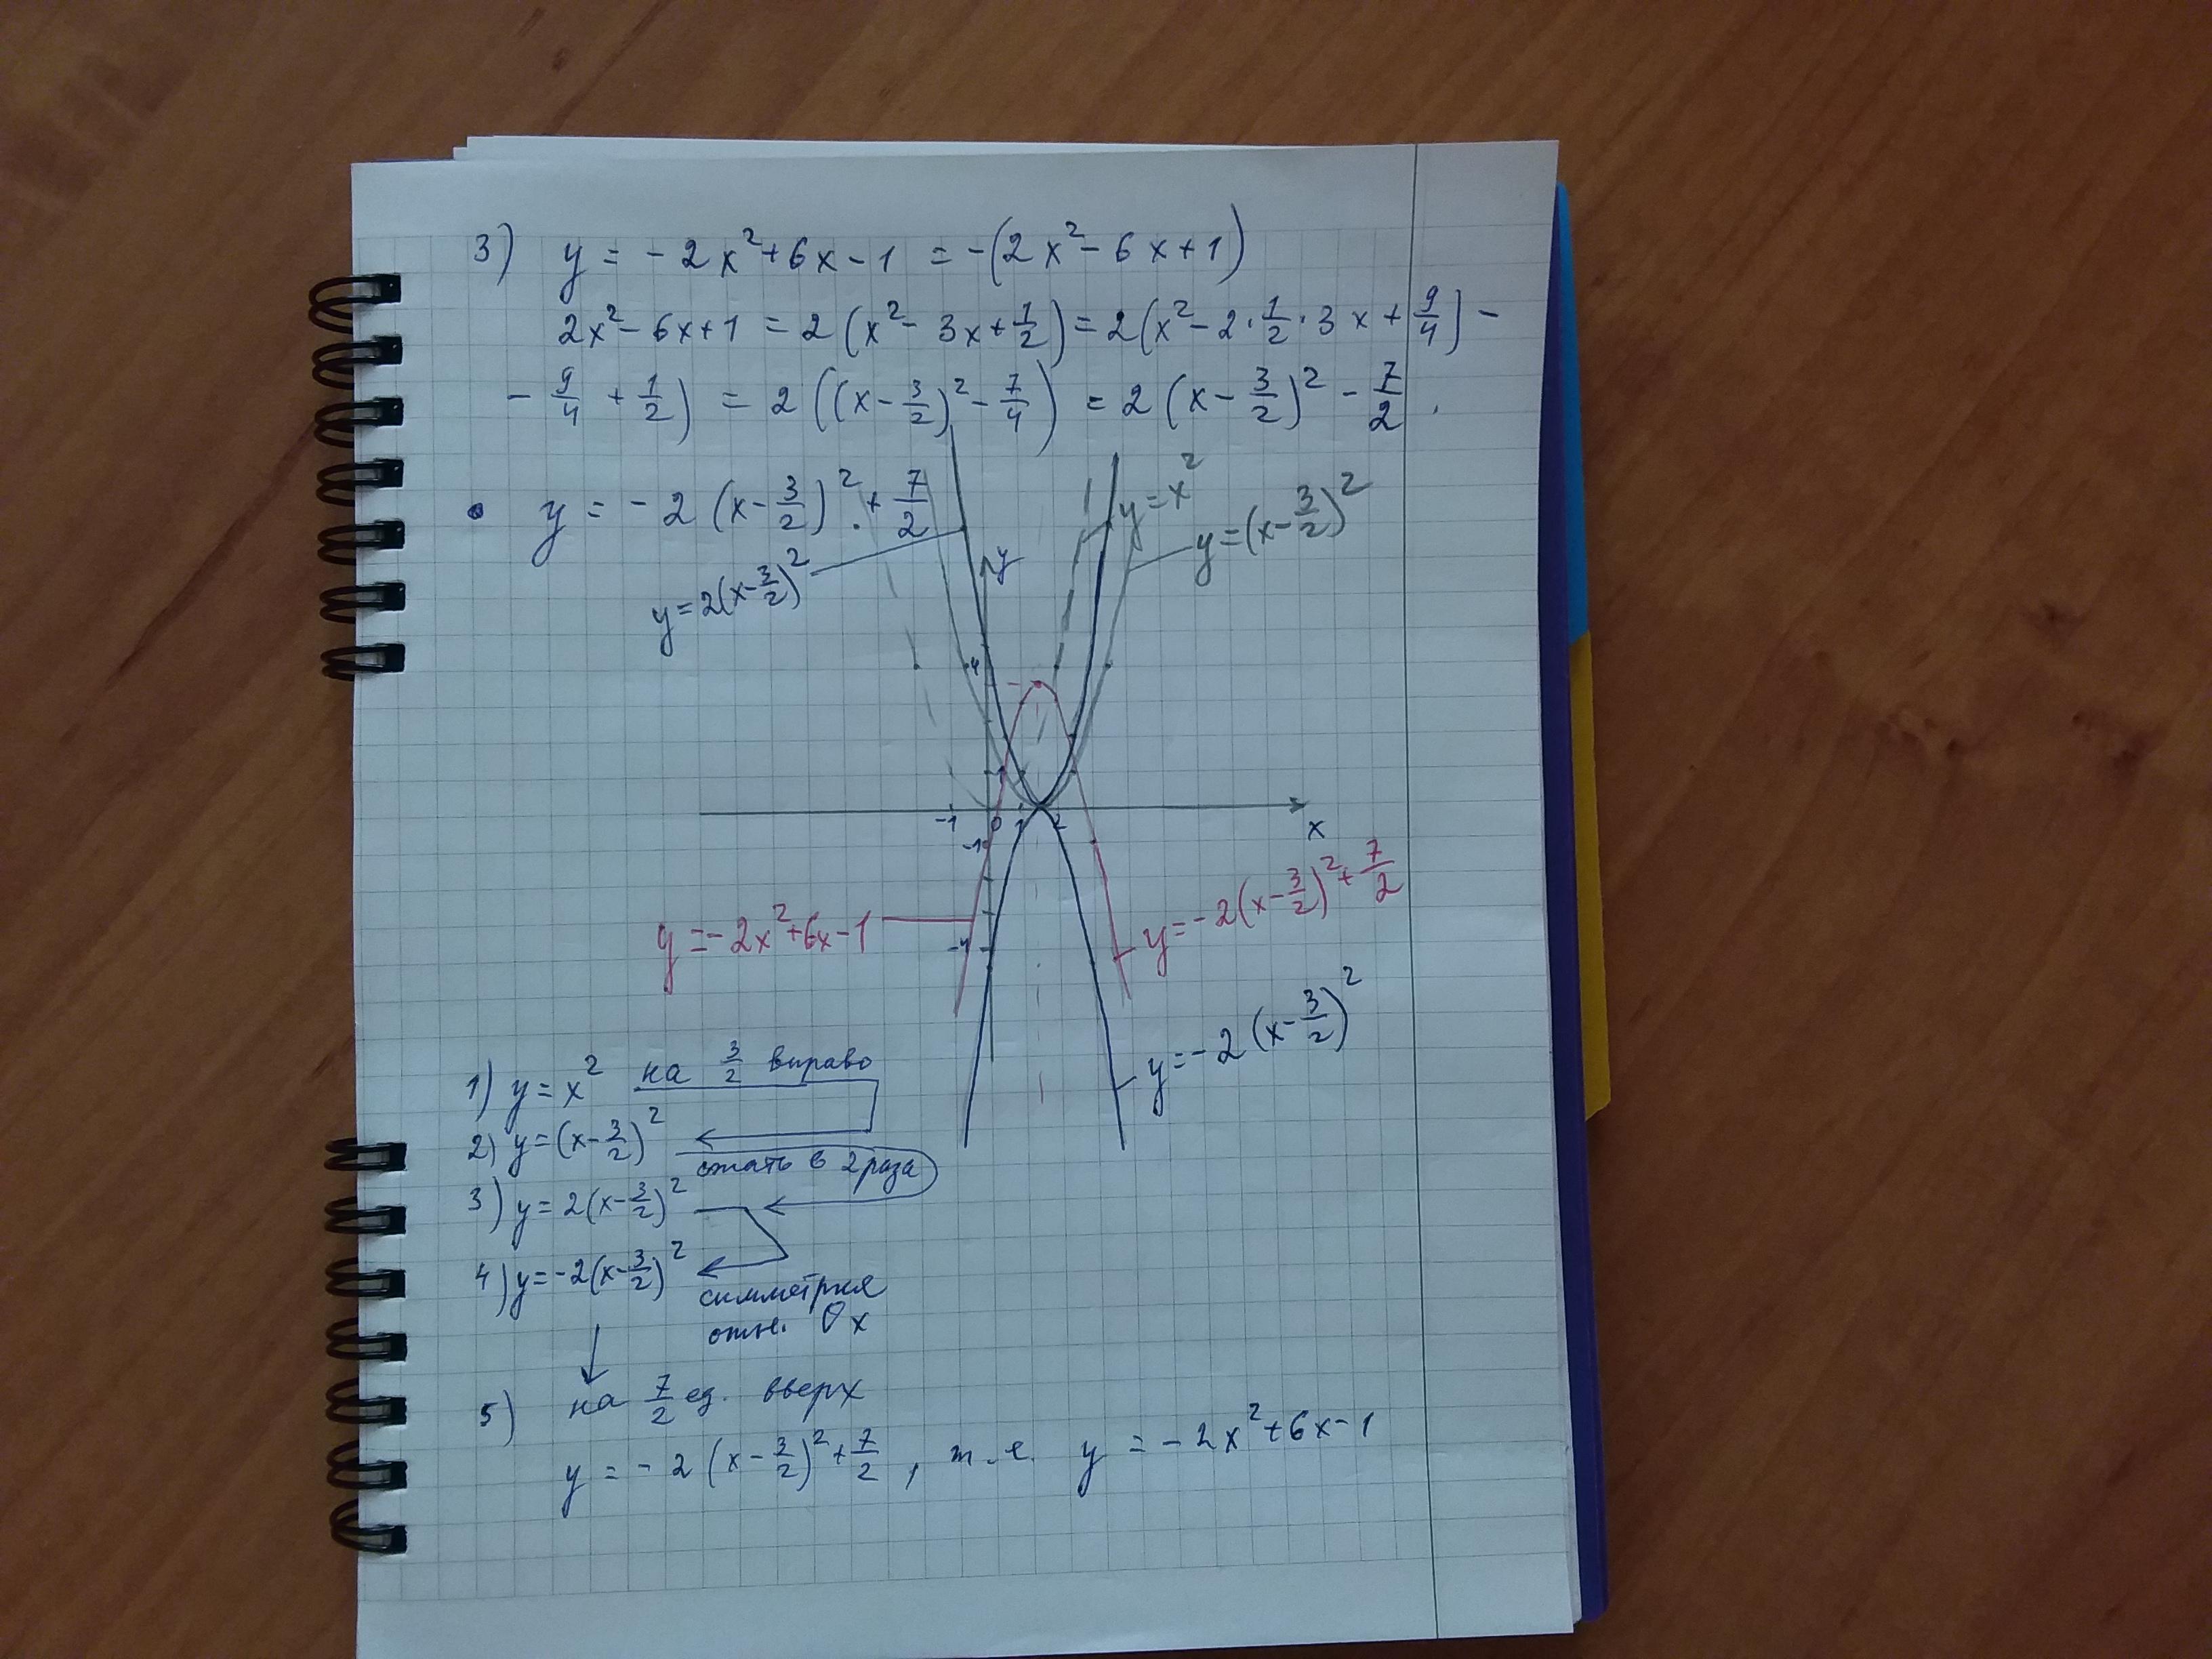 3) y = -2x²+6x-1 = -(2x²-6x+1)
2x²-6x+1 = 2(x²-3x+1/2) = 2(x²-2·1/2·3x+9/4)-
-9/4+1/2) = 2((x-3/2)²-7/4) = 2(x-3/2)²-7/2.
• y = -2(x-3/2)²+7/2
y=x²
y=(x-3/2)²
y=2(x-3/2)²
y
4
1
-1 0 1 2
x
-1
-4
y=-2x²+6x-1
y=-2(x-3/2)²+7/2
y=-2(x-3/2)²
1) y=x² на 3/2 вправо
2) y=(x-3/2)²
сжать в 2 раза
3) y=2(x-3/2)²
4) y=-2(x-3/2)²
симметрия
отн. Ox
5) на 7/2 ед. вверх
y = -2(x-3/2)²+7/2, т.е. y = -2x²+6x-1